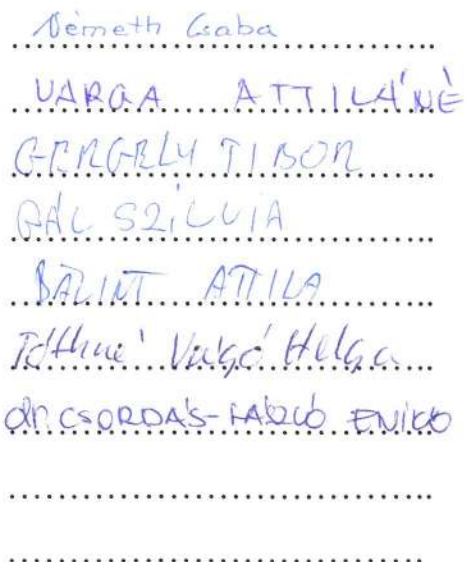 Németh Csaba
VARGA ATTILÁNÉ
GERGELY TIBOR
GÁL SZILVIA
BÁLINT ATTILA
Tóthné Vágó Helga
dr. CSORDÁS-LÁSZLÓ ENIKŐ